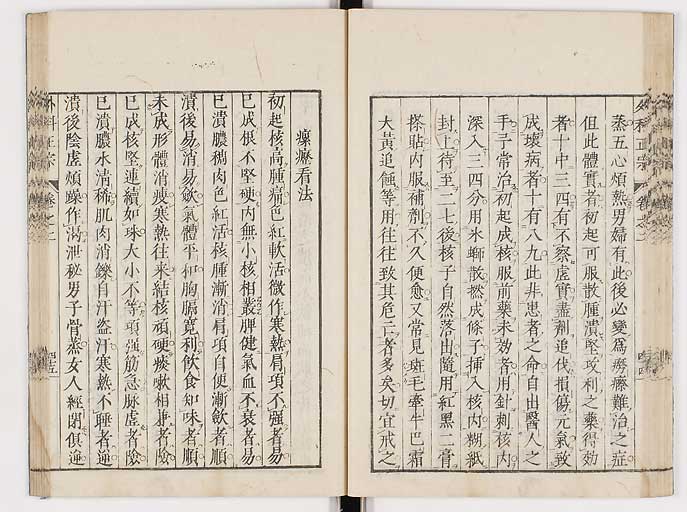 蒸五心煩熱男婦有此後必變爲癆瘵難治之症
但此體實者初起可服散腫潰堅攻利之藥得効
者十中三四有不察虛實盡劑追伐損傷元氣致
成壞病者十有八九此非患者之命自出醫人之
手予常治初起成核服前藥未効者用針刺核內
深入三四分用氷螄散撚成條子插入核內糊紙
封上待至二七後核子自然落出隨用紅黑二膏
搽貼內服補劑不久便愈又常見斑毛牽牛巴霜
大黃追蝕等用往往致其危亡者多矣切宜戒之
外科正宗 卷之二
瘰癧看法
初起核高腫痛色紅軟活微作寒熱肩項不强者易
已成根不堅硬內無小核相叢脾健氣血不衰者易
已潰膿稠肉色紅活核腫漸消肩項自便漸飲者順
潰後易消易斂氣體平和胸膈寛利飲食知味者順
未成形體消瘦寒熱往來結核頑硬痰嗽相兼者險
已成核堅連續如珠大小不等項强筋急脉虛者險
已潰膿水清稀肌肉消鑠自汗盜汗寒熱不睡者逆
潰後陰虛煩躁作渴泄秘男子骨蒸女人經閉俱逆
外科正宗 卷之二